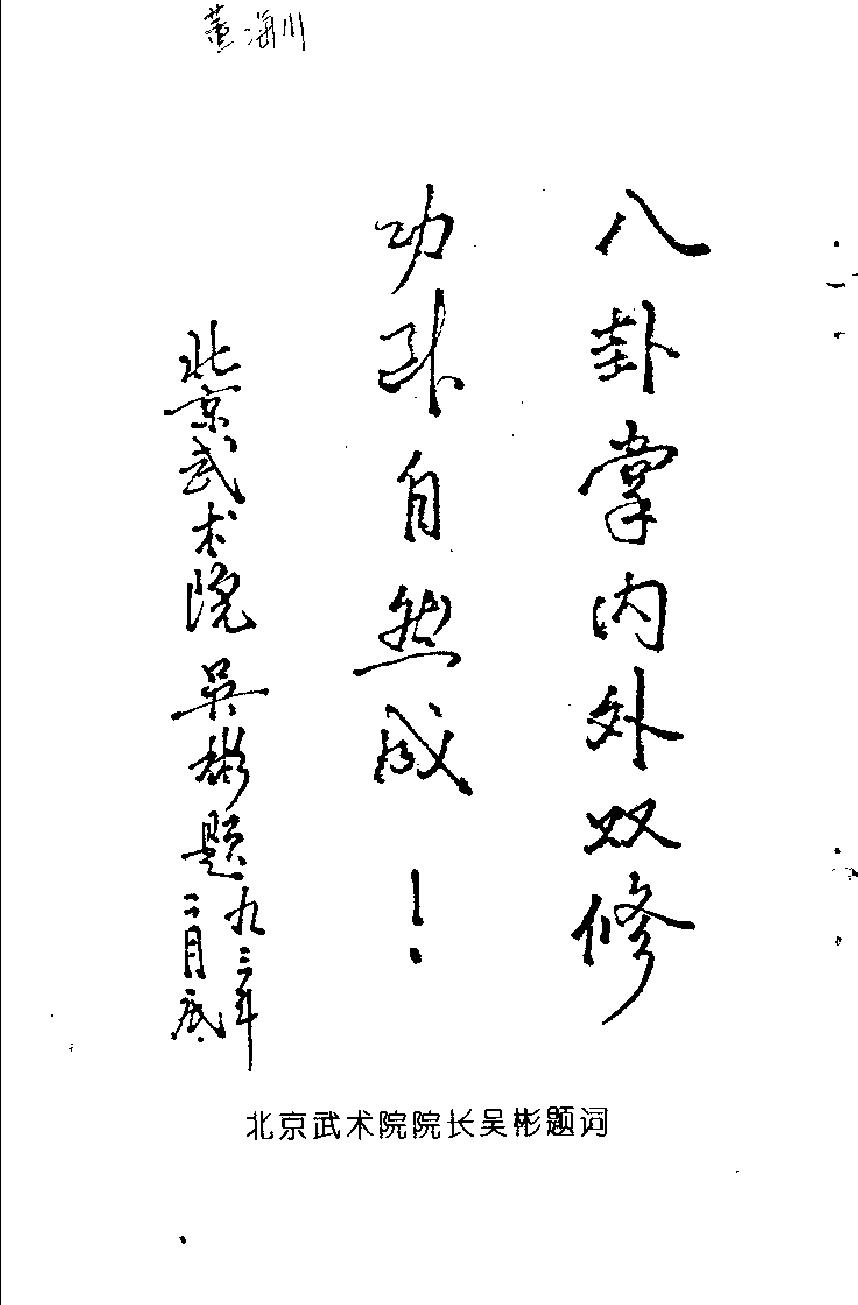 董海川
八卦掌内外双修
功到自然成！
北京武术院 吴彬题
九三年
二月底
北京武术院院长吴彬题词